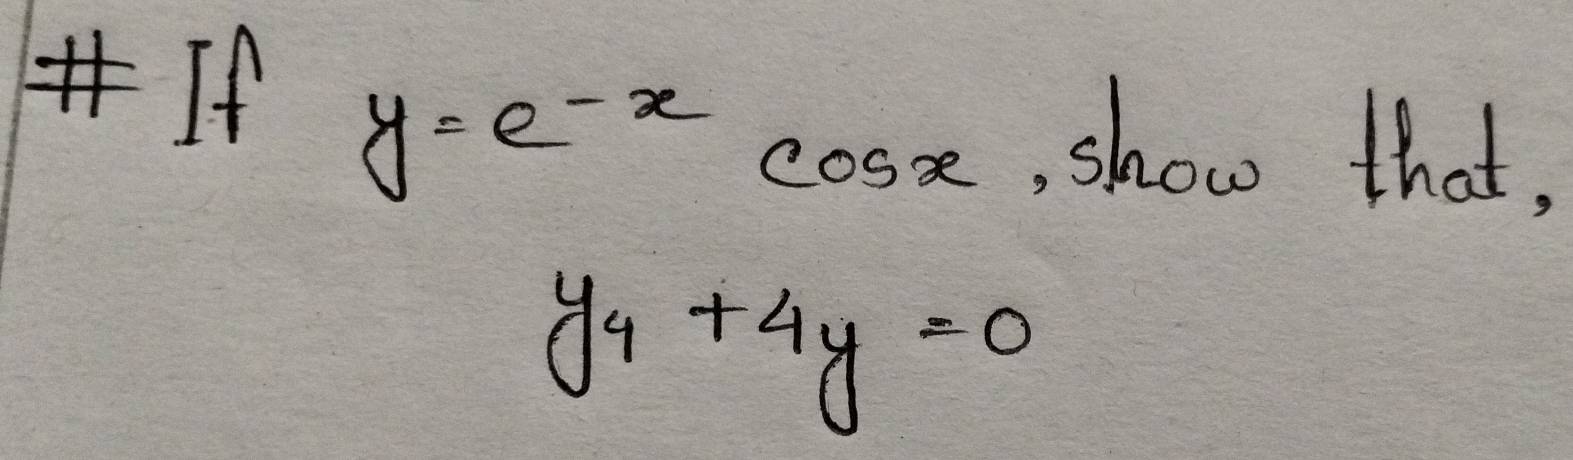 # If y = e^-x cosx, show that,
y₄ + 4y = 0